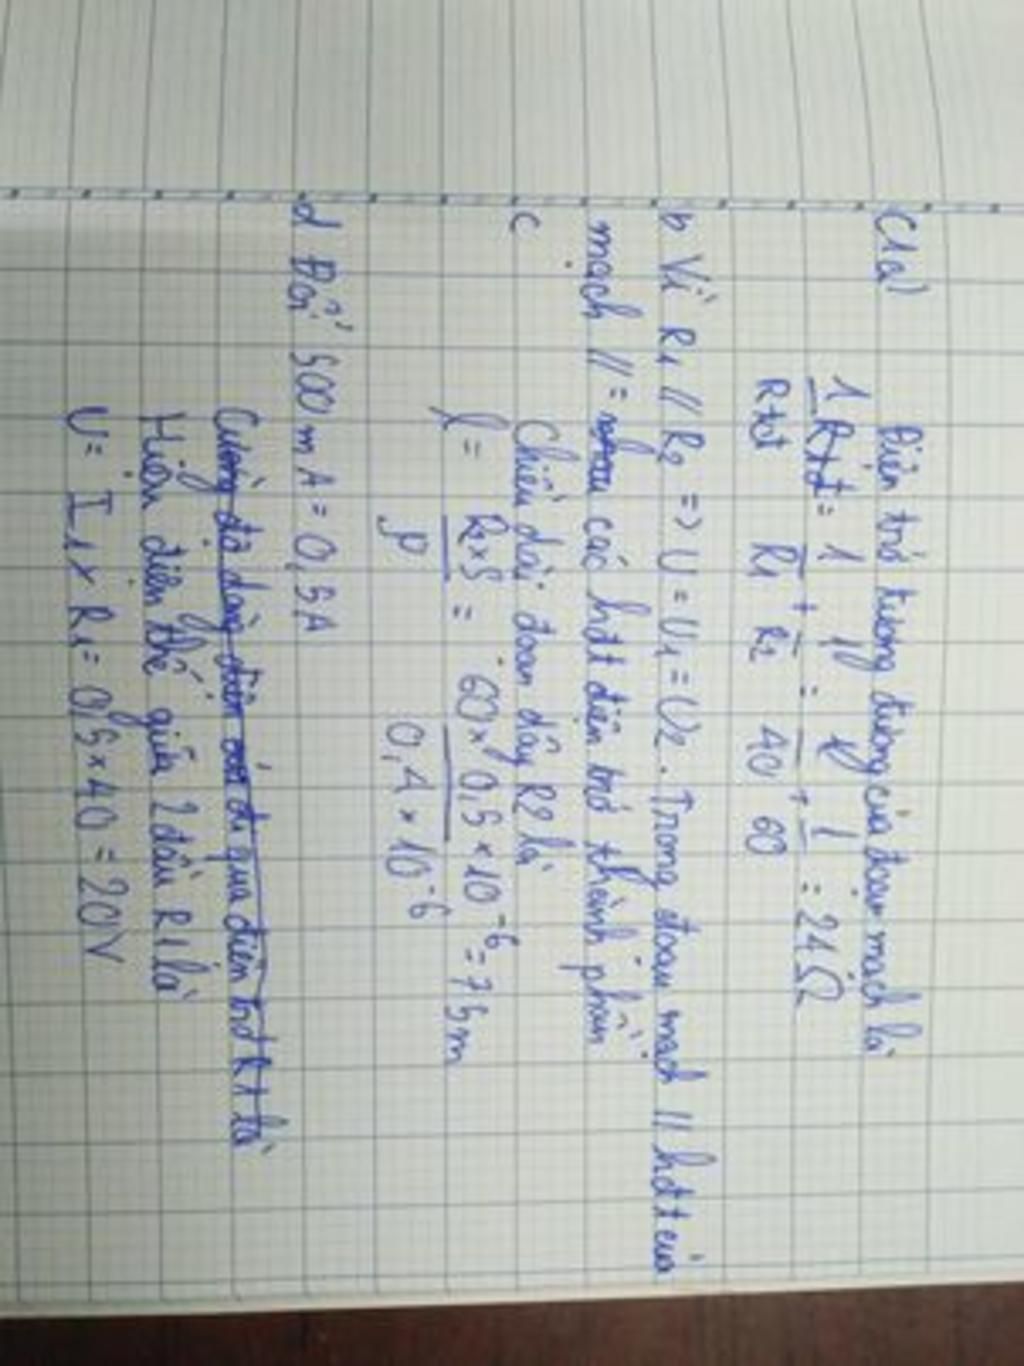 C1a) Điện trở tương đương của đoạn mạch là
1/Rtđ = 1/R1 + 1/R2 = 1/40 + 1/60 = 24Ω
b Vì R1 // R2 => U = U1 = U2. Trong đoạn mạch // hđt của
mạch // = các hđt điện trở thành phần
c Chiều dài đoạn dây R2 là
l = R2 x S / ρ = 60 x 0,5 x 10⁻⁶ / 0,4 x 10⁻⁶ = 75m
d Đổi 500 mA = 0,5A
Cường độ dòng điện đi qua điện trở R1 là
Hiệu điện thế giữa 2 đầu R1 là
U = I1 x R1 = 0,5 x 40 = 20V